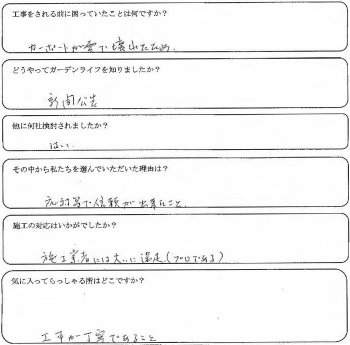 工事をされる前に困っていたことは何ですか?
カーポートが雪で壊れたため、
どうやってガーデンライフを知りましたか?
新聞広告
他に何社検討されましたか?
はい、
その中から私たちを選んでいただいた理由は?
応対等で信頼が出来たこと、
施工の対応はいかがでしたか?
施工業者には大いに満足(プロである)
気に入ってらっしゃる所はどこですか?
工事が丁寧であること